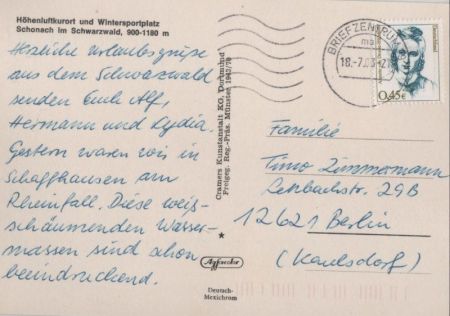 Höhenluftkurort und Wintersportplatz
Schonach im Schwarzwald, 900-1180 m
Herzliche Urlaubsgrüße
aus dem Schwarzwald
senden Euch Alf,
Hermann und Lydia.
Gestern waren wir in
Schaffhausen am
Rheinfall. Diese weiß-
schäumenden Wasser-
massen sind schon
beeindruckend.
Cramers Kunstanstalt KG, Dortmund
Freigeg. Reg.-Präs. Münster 1942/70
Deutsch-
Mexichrom
BRIEFZENTRUM
18.-7.03-21
Deutschland
0,45€
Familie
Timo Zimmermann
29B
12621 Berlin
(Kaulsdorf)